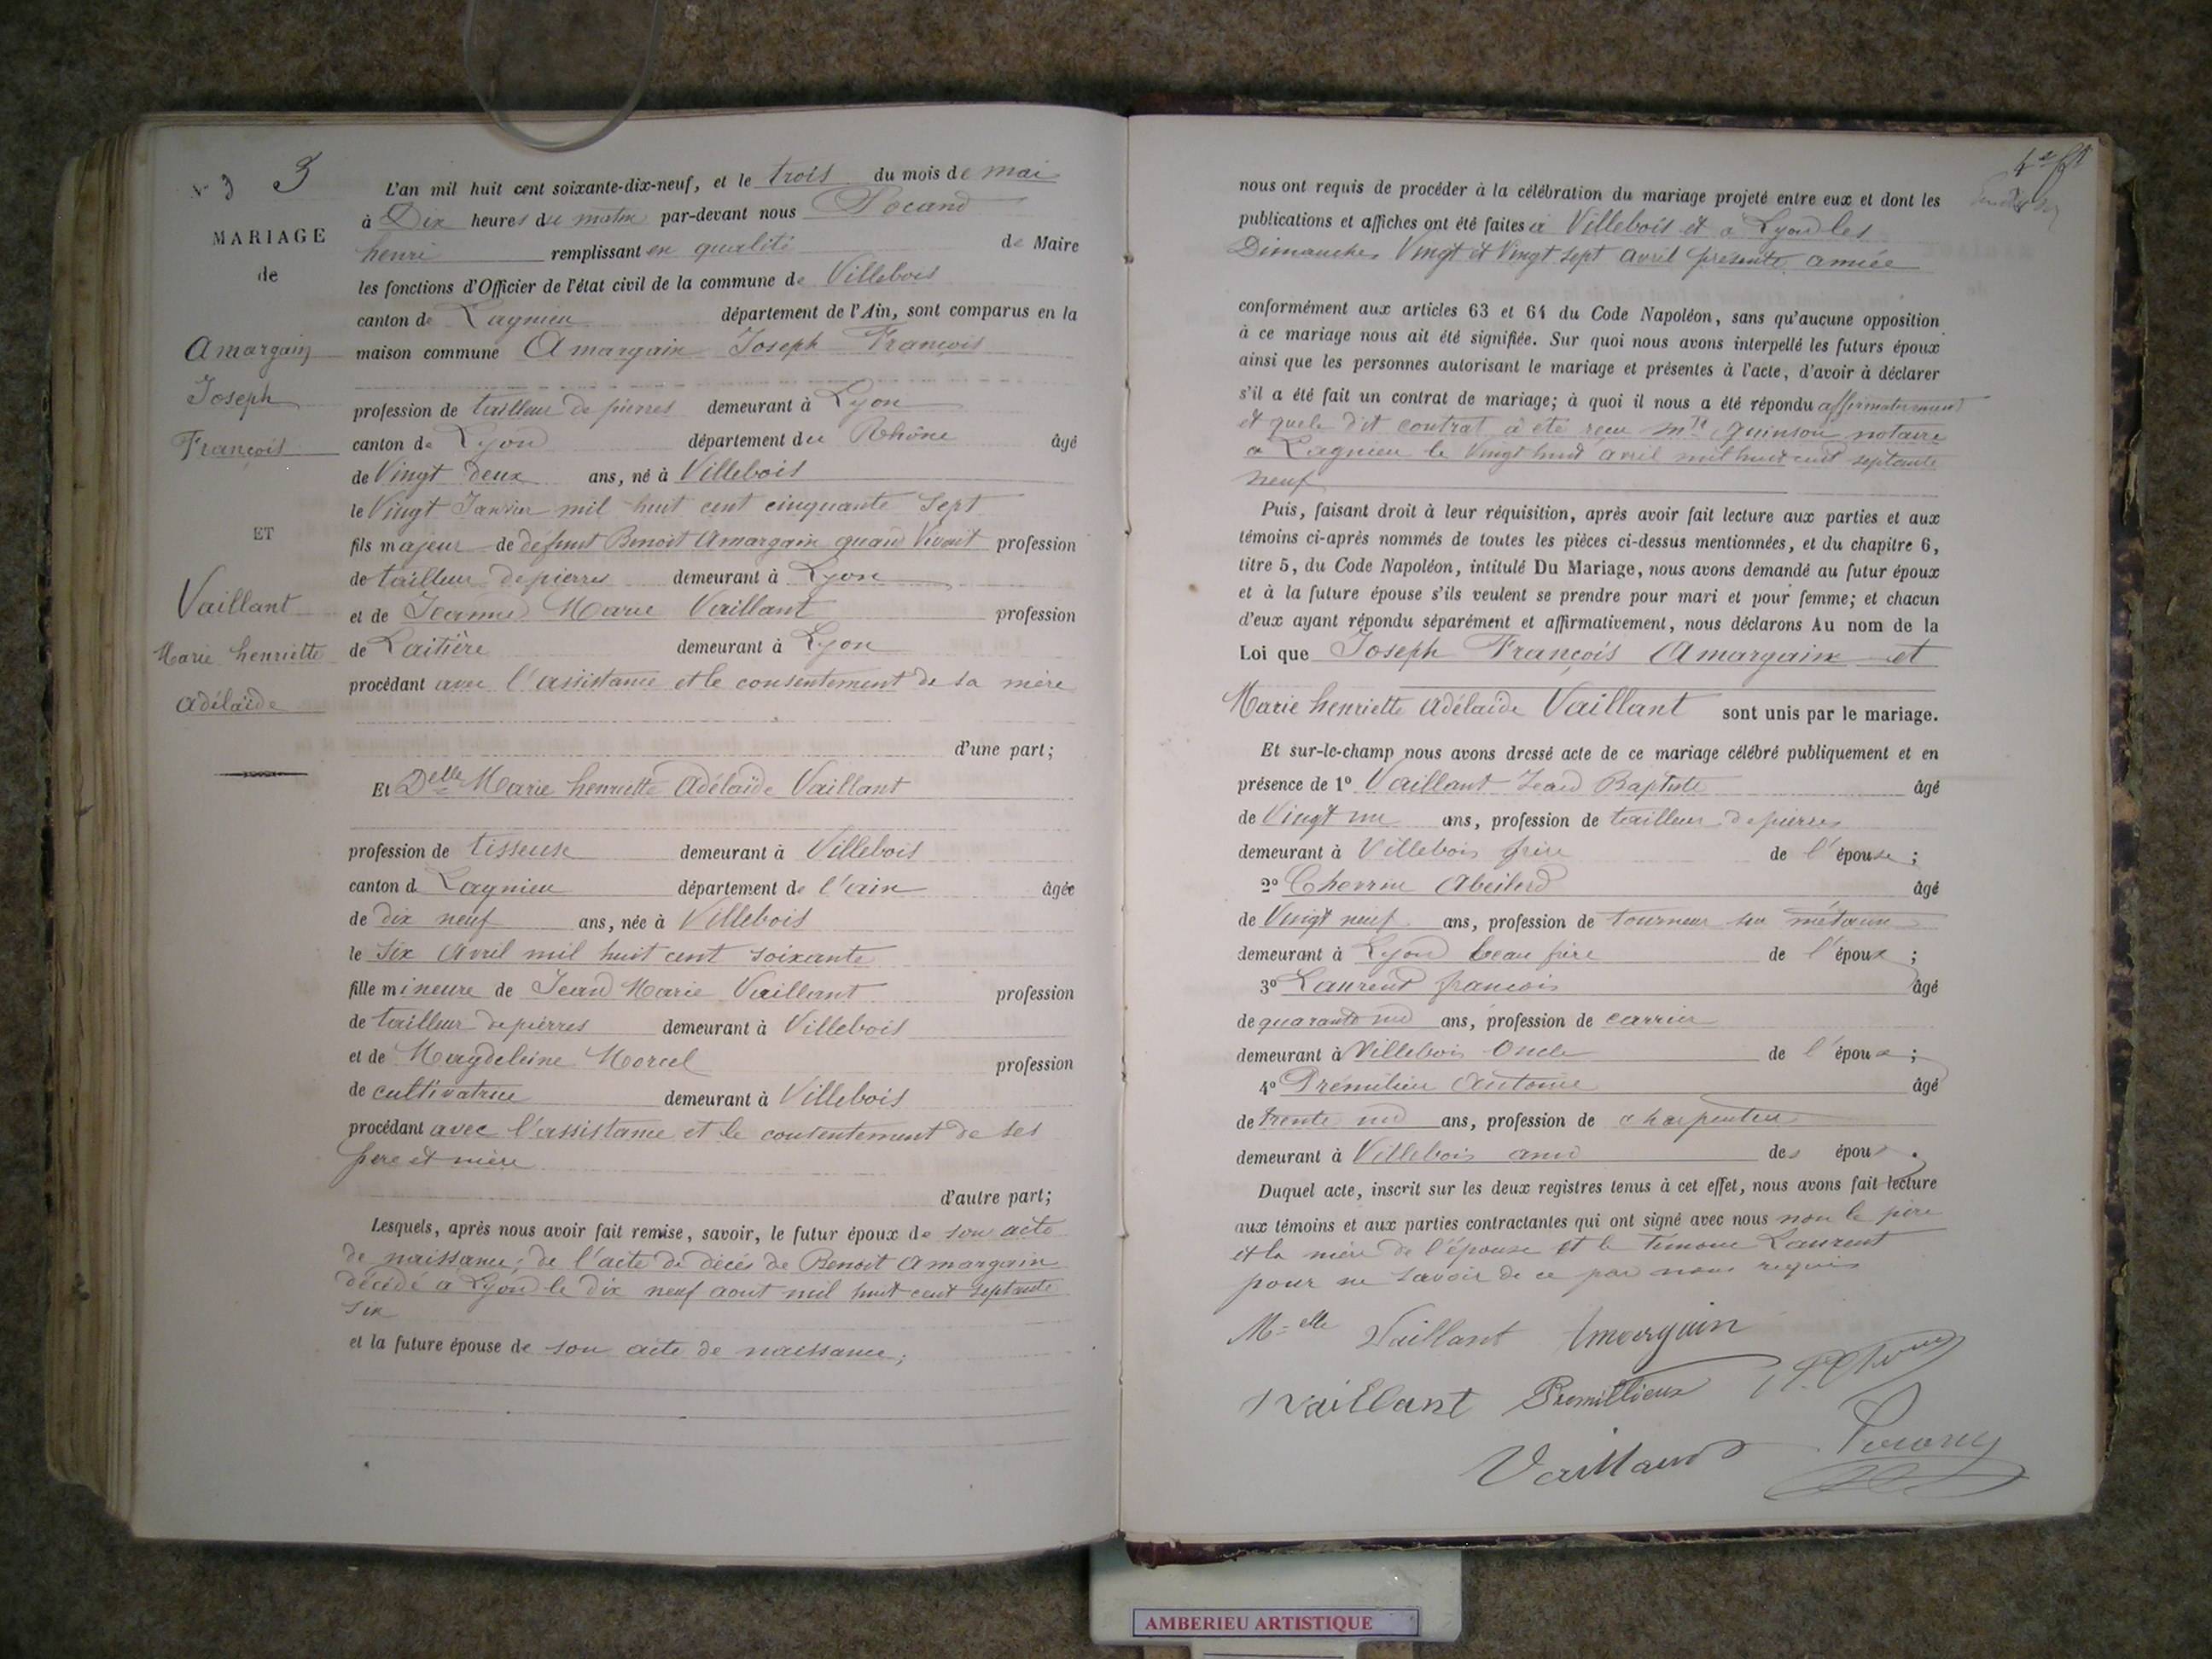 N° 3 3
MARIAGE
de
Amargain
Joseph
François
ET
Vaillant
Marie henriette
Adélaïde
L'an mil huit cent soixante-dix-neuf, et le trois du mois de mai
à Dix heures du matin par-devant nous Pocand
henri remplissant en qualité de Maire
les fonctions d'Officier de l'état civil de la commune de Villebois
canton de Lagnieu département de l'Ain, sont comparus en la
maison commune Amargain Joseph François
profession de tailleur de pierres demeurant à Lyon
canton de Lyon département du Rhône âgé
de Vingt deux ans, né à Villebois
le Vingt Janvier mil huit cent cinquante sept
fils majeur de defunt Benoit Amargain quand Vivait profession
de tailleur de pierres demeurant à Lyon
et de Jeanne Marie Vaillant profession
de Laitière demeurant à Lyon
procédant avec l'assistance et le consentement de sa mère
d'une part;
Et Delle Marie henriette Adélaïde Vaillant
profession de tisseuse demeurant à Villebois
canton d. Lagnieu département de l'ain âgée
de dix neuf ans, née à Villebois
le six Avril mil huit cent soixante
fille mineure de Jean Marie Vaillant profession
de tailleur de pierres demeurant à Villebois
et de Magdeleine Morel profession
de cultivatrice demeurant à Villebois
procédant avec l'assistance et le consentement de ses
père et mère
d'autre part;
Lesquels, après nous avoir fait remise, savoir, le futur époux de son acte
de naissance; de l'acte de décés de Benoit Amargain
décédé a Lyon le dix neuf aout mil huit cent septante
six
et la future épouse de son acte de naissance;
nous ont requis de procéder à la célébration du mariage projeté entre eux et dont les
publications et affiches ont été faites à Villebois et a Lyon les
Dimanches Vingt et Vingt sept avril présente année
conformément aux articles 63 et 64 du Code Napoléon, sans qu'aucune opposition
à ce mariage nous ait été signifiée. Sur quoi nous avons interpellé les futurs époux
ainsi que les personnes autorisant le mariage et présentes à l'acte, d'avoir à déclarer
s'il a été fait un contrat de mariage; à quoi il nous a été répondu affirmativement
et que le dit contrat a été reçu Mte Quinson notaire
a Lagnieu le Vingt huit avril mil huit cent septante
neuf
Puis, faisant droit à leur réquisition, après avoir fait lecture aux parties et aux
témoins ci-après nommés de toutes les pièces ci-dessus mentionnées, et du chapitre 6,
titre 5, du Code Napoléon, intitulé Du Mariage, nous avons demandé au futur époux
et à la future épouse s'ils veulent se prendre pour mari et pour femme; et chacun
d'eux ayant répondu séparément et affirmativement, nous déclarons Au nom de la
Loi que Joseph François Amargain et
Marie henriette Adélaïde Vaillant sont unis par le mariage.
Et sur-le-champ nous avons dressé acte de ce mariage célébré publiquement et en
présence de 1° Vaillant Jean Baptiste âgé
de Vingt un ans, profession de tailleur de pierres
demeurant à Villebois frère de l'épouse;
2° Cherrin Abeilard âgé
de Vingt neuf ans, profession de tourneur sur métaux
demeurant à Lyon beau frère de l'époux;
3° Laurent francois âgé
de quarante un ans, profession de carrier
demeurant à Villebois Oncle de l'époux;
4° Prémilieu Antoine âgé
de trente un ans, profession de charpentier
demeurant à Villebois ami des époux.
Duquel acte, inscrit sur les deux registres tenus à cet effet, nous avons fait lecture
aux témoins et aux parties contractantes qui ont signé avec nous non le père
et la mère de l'épouse et le témoin Laurent
pour ne savoir de ce par nous requis
M=elle Vaillant Amargain
Vaillant Premillieux
Vaillant
AMBERIEU ARTISTIQUE